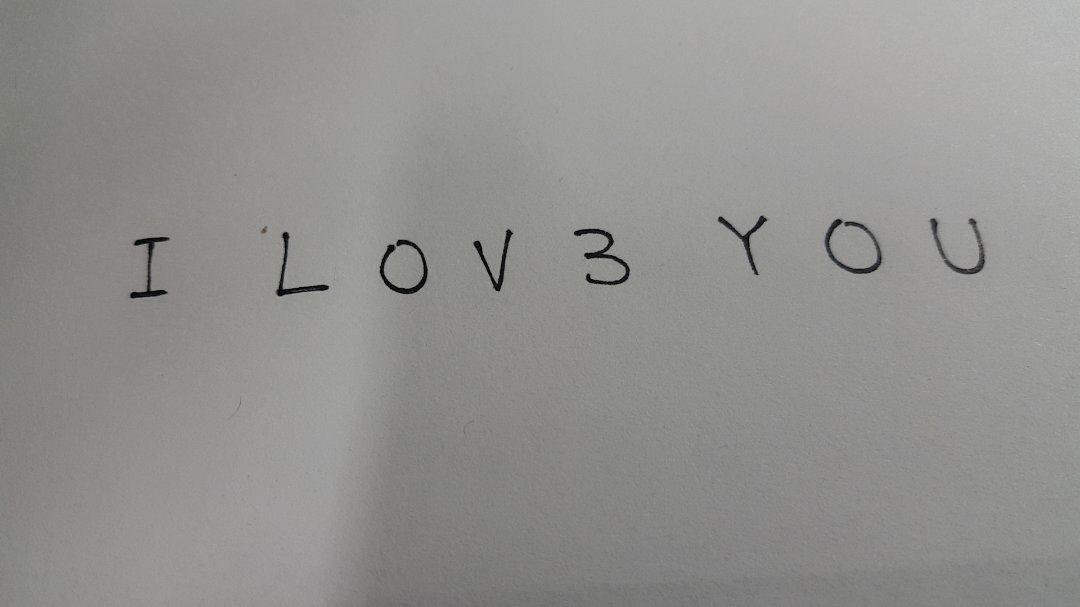 I LOV3 YOU